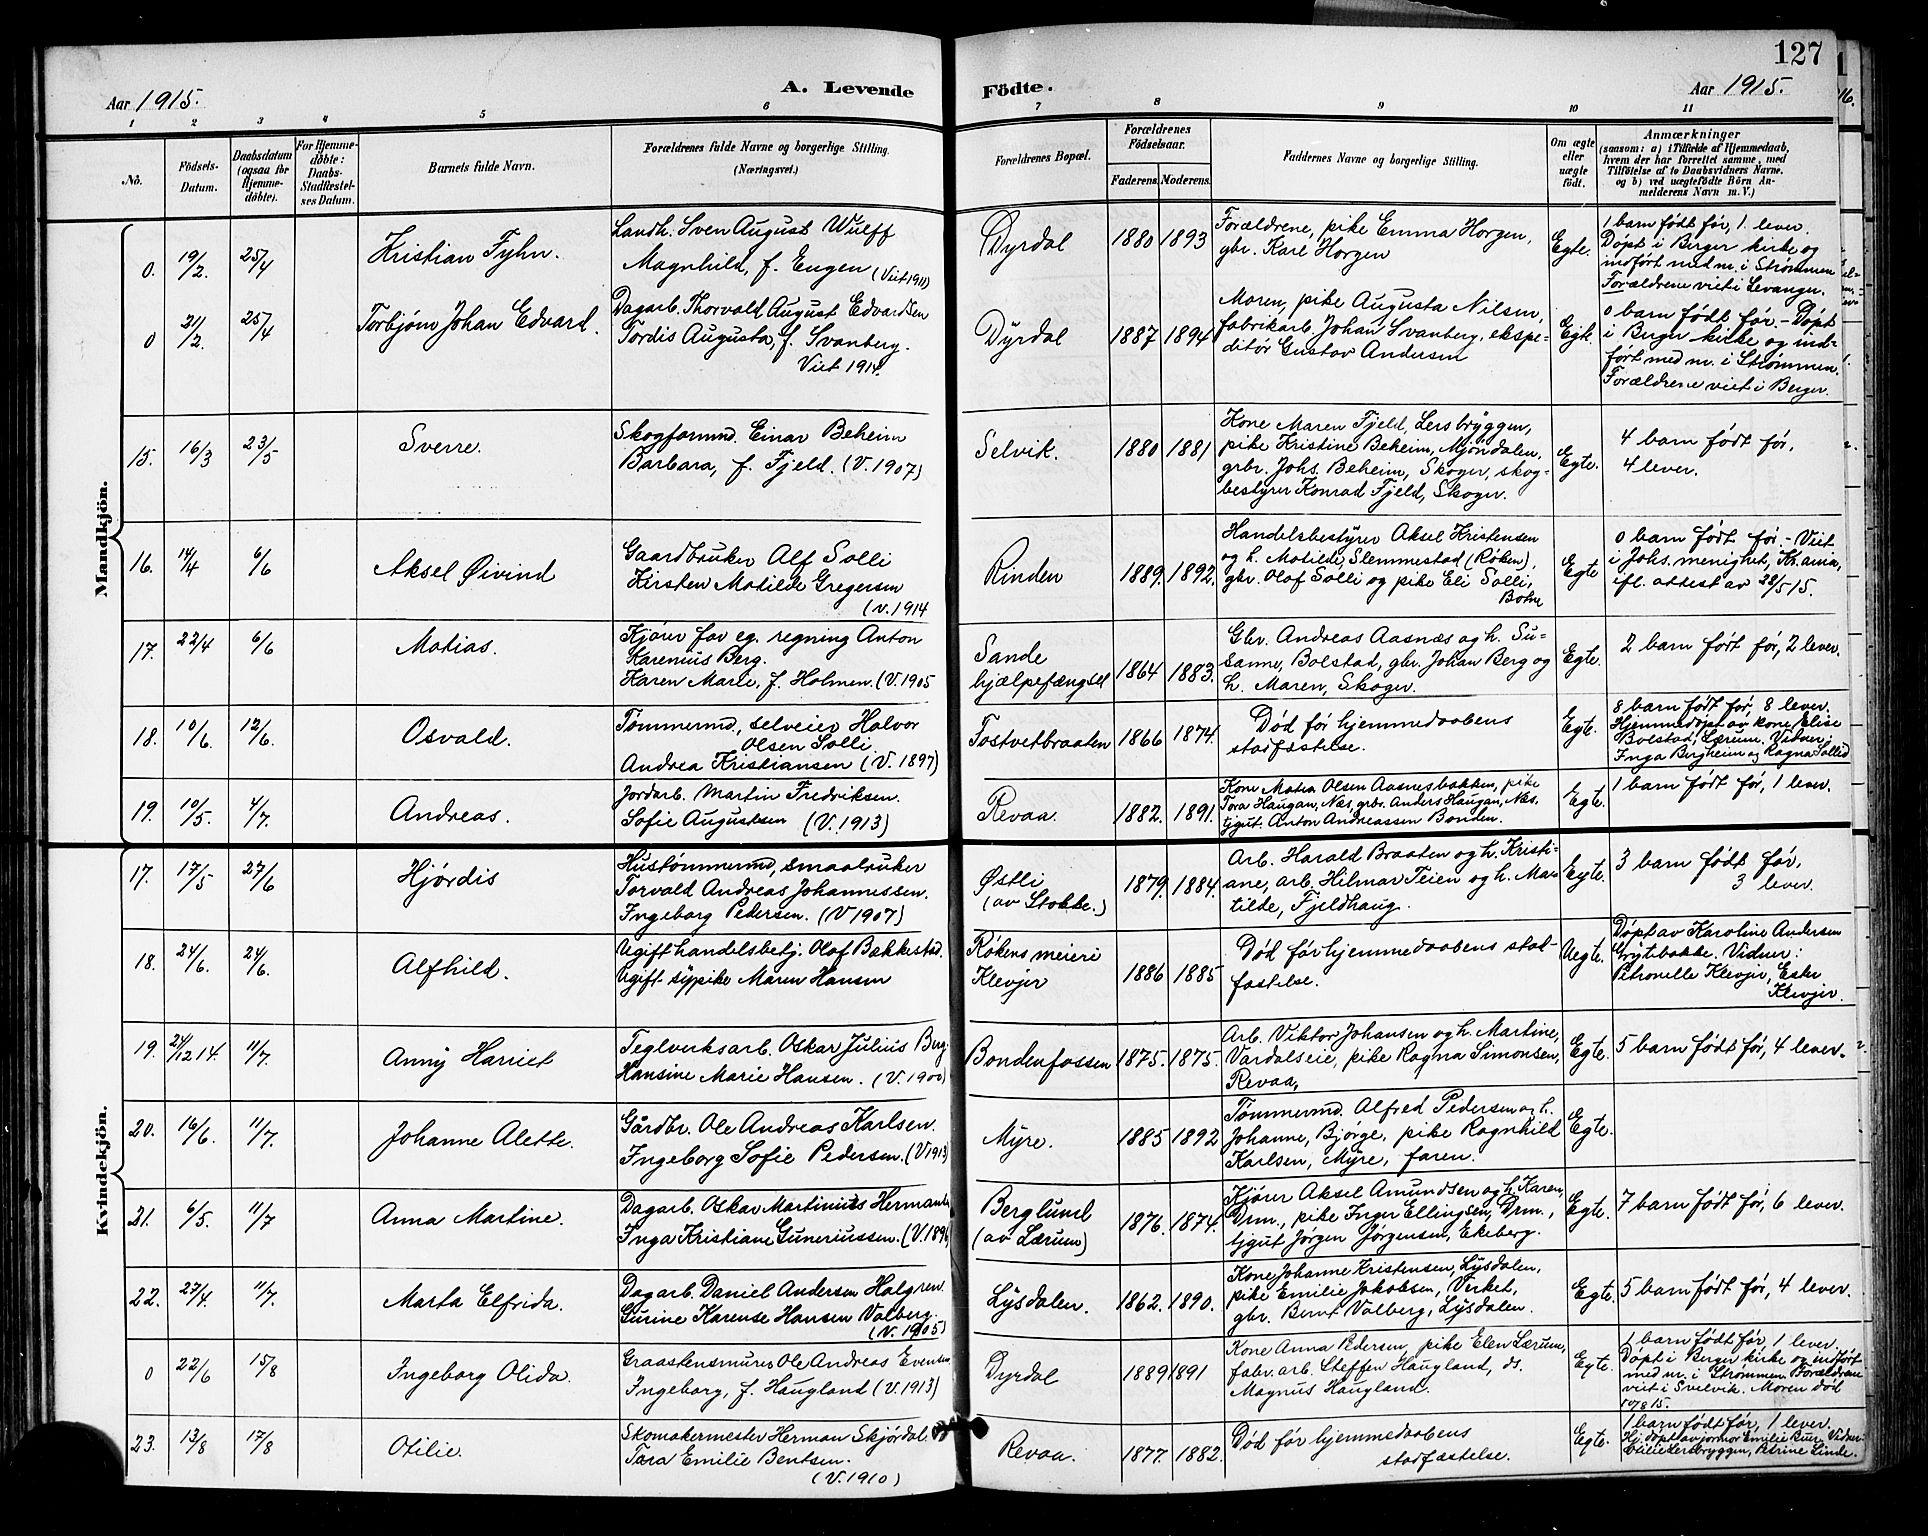 127
Aar 1915.
A. Levende
Födte.
Aar 1915.
1 2 3 4 5 6 7 8 9 10 11
No.
Födsels-Datum.
Daabsdatum (ogsaa for Hjemme-döbte).
For Hjemme-döbte: Daabs-Stadfæstel-ses Datum.
Barnets fulde Navn.
Forældrenes fulde Navne og borgerlige Stilling. (Næringsvei.)
Forældrenes Bopæl.
Forældrenes Födselsaar.
Faderens. Moderens.
Faddernes Navne og borgerlige Stilling.
Om ægte eller uægte födt.
Anmærkninger
(saasom: a) i Tilfælde af Hjemmedaab,
hvem der har forrettet samme, med
Tilföielse af to Daabsvidners Navne,
og b) ved uægtefödte Börn An-
melderens Navn m. V.)
Mandkjön.
0. 19/2. 25/4 Kristian Fyhn.
Landh. Sven August Wulff
Magnhild, f. Eugen (Viet 1911)
Dyrdal 1880 1893
Forældrene, pike Emma Horgen,
gbr. Karl Horgen
Egte.
1 barn født før, 1 lever.
Døpt i Berger kirke og
indført med nr. i Strømmen
Forældrene viet i Levanger.
0 21/2. 25/4 Torbjørn Johan Edvard.
Dagarb. Thorvald August Edvardsen
Tordis Augusta, f. Svanberg.
Viet 1914.
Dyrdal 1887 1894
Moren, pike Augusta Nilsen,
fabrikarb. Johan Svanberg, ekspe-
ditør Gustav Andersen
Egte.
0 barn født før. - Døpt
i Berger kirke og ind-
ført med nr. i Strømmen.
Forældrene viet i Berger.
15. 16/3 23/5 Sverre.
Skogformd. Einar Beheim
Barbara, f. Fjeld. (V. 1907)
Selvik. 1880 1881
Kone Maren Fjeld, Lersbryggen,
pike Kristine Beheim, Mjøndalen,
grbr. Johs. Beheim, Skoger, skog-
bestyrer Konrad Fjeld, Skoger.
Egte.
4 barn født før,
4 lever.
16. 14/4 6/6 Aksel Øivind
Gaardbruker Alf Solli
Kirsten Matilde Gregersen
(V. 1914
Rinden 1889. 1892.
Handelsbestyrer Aksel Kristensen
og h. Matilde, Slemmestad (Røken),
gbr. Olaf Solli og pike Eli Solli,
Botne
Egte
0 barn født før. - Viet
i Johs. menighet, Kr.ania,
ifl. attest av 28/5 15.
17. 22/4 6/6 Matias.
Kjører for eg. regning Anton
Karenius Berg.
Karen Marie, f. Holmen. (V. 1905
Sande
hjælpefængsel 1864 1883.
Gbr. Andreas Aasnæs og h. Su-
sanne, Bolstad, gbr. Johan Berg og
h. Maren, Skoger.
Egte.
2 barn født før, 2 lever.
18. 10/6. 12/6. Osvald.
Tømmermd., selveier Halvor
Olsen Solli.
Andrea Kristiansen (V. 1897)
Tostvetbraaten 1866 1874.
Død før hjemmedaabens
stadfæstelse.
Egte.
8 barn født før, 8 lever.
Hjemmedøpt av kone Elise
Bolstad, Lærum, Vidner:
Inga Bergheim og Ragna Sollid
19. 10/5. 4/7. Andreas.
Jordarb. Martin Fredriksen.
Sofie Augustsen (V. 1913)
Revaa. 1882. 1891.
Kone Matea Olsen Aasnesbakken, pike
Tora Haugan, Næs, grbr. Anders Haugan, Næs,
tjgut. Anton Andreassen Bonden.
Egte.
1 barn født før, 1 lever.
Kvindekjön.
17. 17/5 27/6 Hjørdis
Hustømmermd., smaabruker
Torvald Andreas Johannessen.
Ingeborg Pedersen. (V 1907)
Østli
(av Stokke.) 1879. 1884.
Arb. Harald Braaten og h. Kristi-
ane, arb. Hilmar Teien og h. Ma-
tilde, Fjeldhaug.
Egte.
3 barn født før,
3 lever.
18. 24/6. 24/6. Alfhild.
Ugift handelsbetj. Olaf Bakkestad.
Ugift sypike Maren Hansen
Røkens meieri
Klevjer 1886 1885
Død før hjemmedaabens stad-
fæstelse.
Uegte.
Døpt av Karoline Andersen
Grytebakke. Vidner:
Petronelle Klevjer, Ester
Klevjer.
19. 24/12 14. 11/7. Anny Harriet
Teglverksarb. Oskar Julius Berg
Hansine Marie Hansen. (V. 1900)
Bondenfossen 1875. 1875.
Arb. Viktor Johansen og h. Martine,
Vardalseie, pike Ragna Simonsen,
Revaa,
Egte.
5 barn født før, 4 lever.
20. 16/6. 11/7. Johanne Alette.
Gårdbr. Ole Andreas Karlsen.
Ingeborg Sofie Pedersen. (V 1913)
Myre. 1885 1892
Tømmermd. Alfred Pedersen og h.
Johanne, Bjørge, pike Ragnhild
Karlsen, Myre, faren.
Egte.
21. 6/5. 11/7 Anna Martine.
Dagarb. Oskar Martinius Hermans
Inga Kristiane Guneriussen. (V. 1896
Berglund
(av Lærum) 1876. 1874.
Kjører Aksel Amundsen og h. Karen,
Drm., pike Inger Ellingsen, Drm.,
tjgut Jørgen Jørgensen, Ekeberg.
Egte.
7 barn født før, 6 lever.
22. 27/4. 11/7. Marta Elfrida.
Dagarb. Daniel Andersen Halgren.
Gurine Karense Hansen Valberg.
(V. 1905)
Lysdalen. 1862. 1890.
Kone Johanne Kristensen, Lysdalen,
pike Emilie Jakobsen, Verket,
gbr. Bernt Valberg, Lysdalen.
Egte.
5 barn født før, 4 lever.
0 22/6 15/8 Ingeborg Olida.
Graastensmurer Ole Andreas Evensen
Ingeborg, f. Haugland (V. 1913)
Dyrdal 1889 1891
Kone Anna Pedersen, pike Elen Lærum,
fabr. arb. Steffen Haugland, ds.
Magnus Haugland.
Egte.
1 barn født før, 1 lever.
Døpt i Berger kirke og indført
med nr. i Strømmen. Forældrene
viet i Svelvik. Moren død
10/8 15.
23. 13/8 17/8 Otilie.
Skomakermester Herman Skjørdal
Tara Emilie Bentsen.
(V. 1910)
Revaa. 1877. 1882.
Død før hjemmedaabens
stadfæstelse.
Egte.
1 barn født før, 1 lever.
Hj. døpt av jormor Emilie Ruur. Vidner:
Lersbryggen, Petrine Linde.